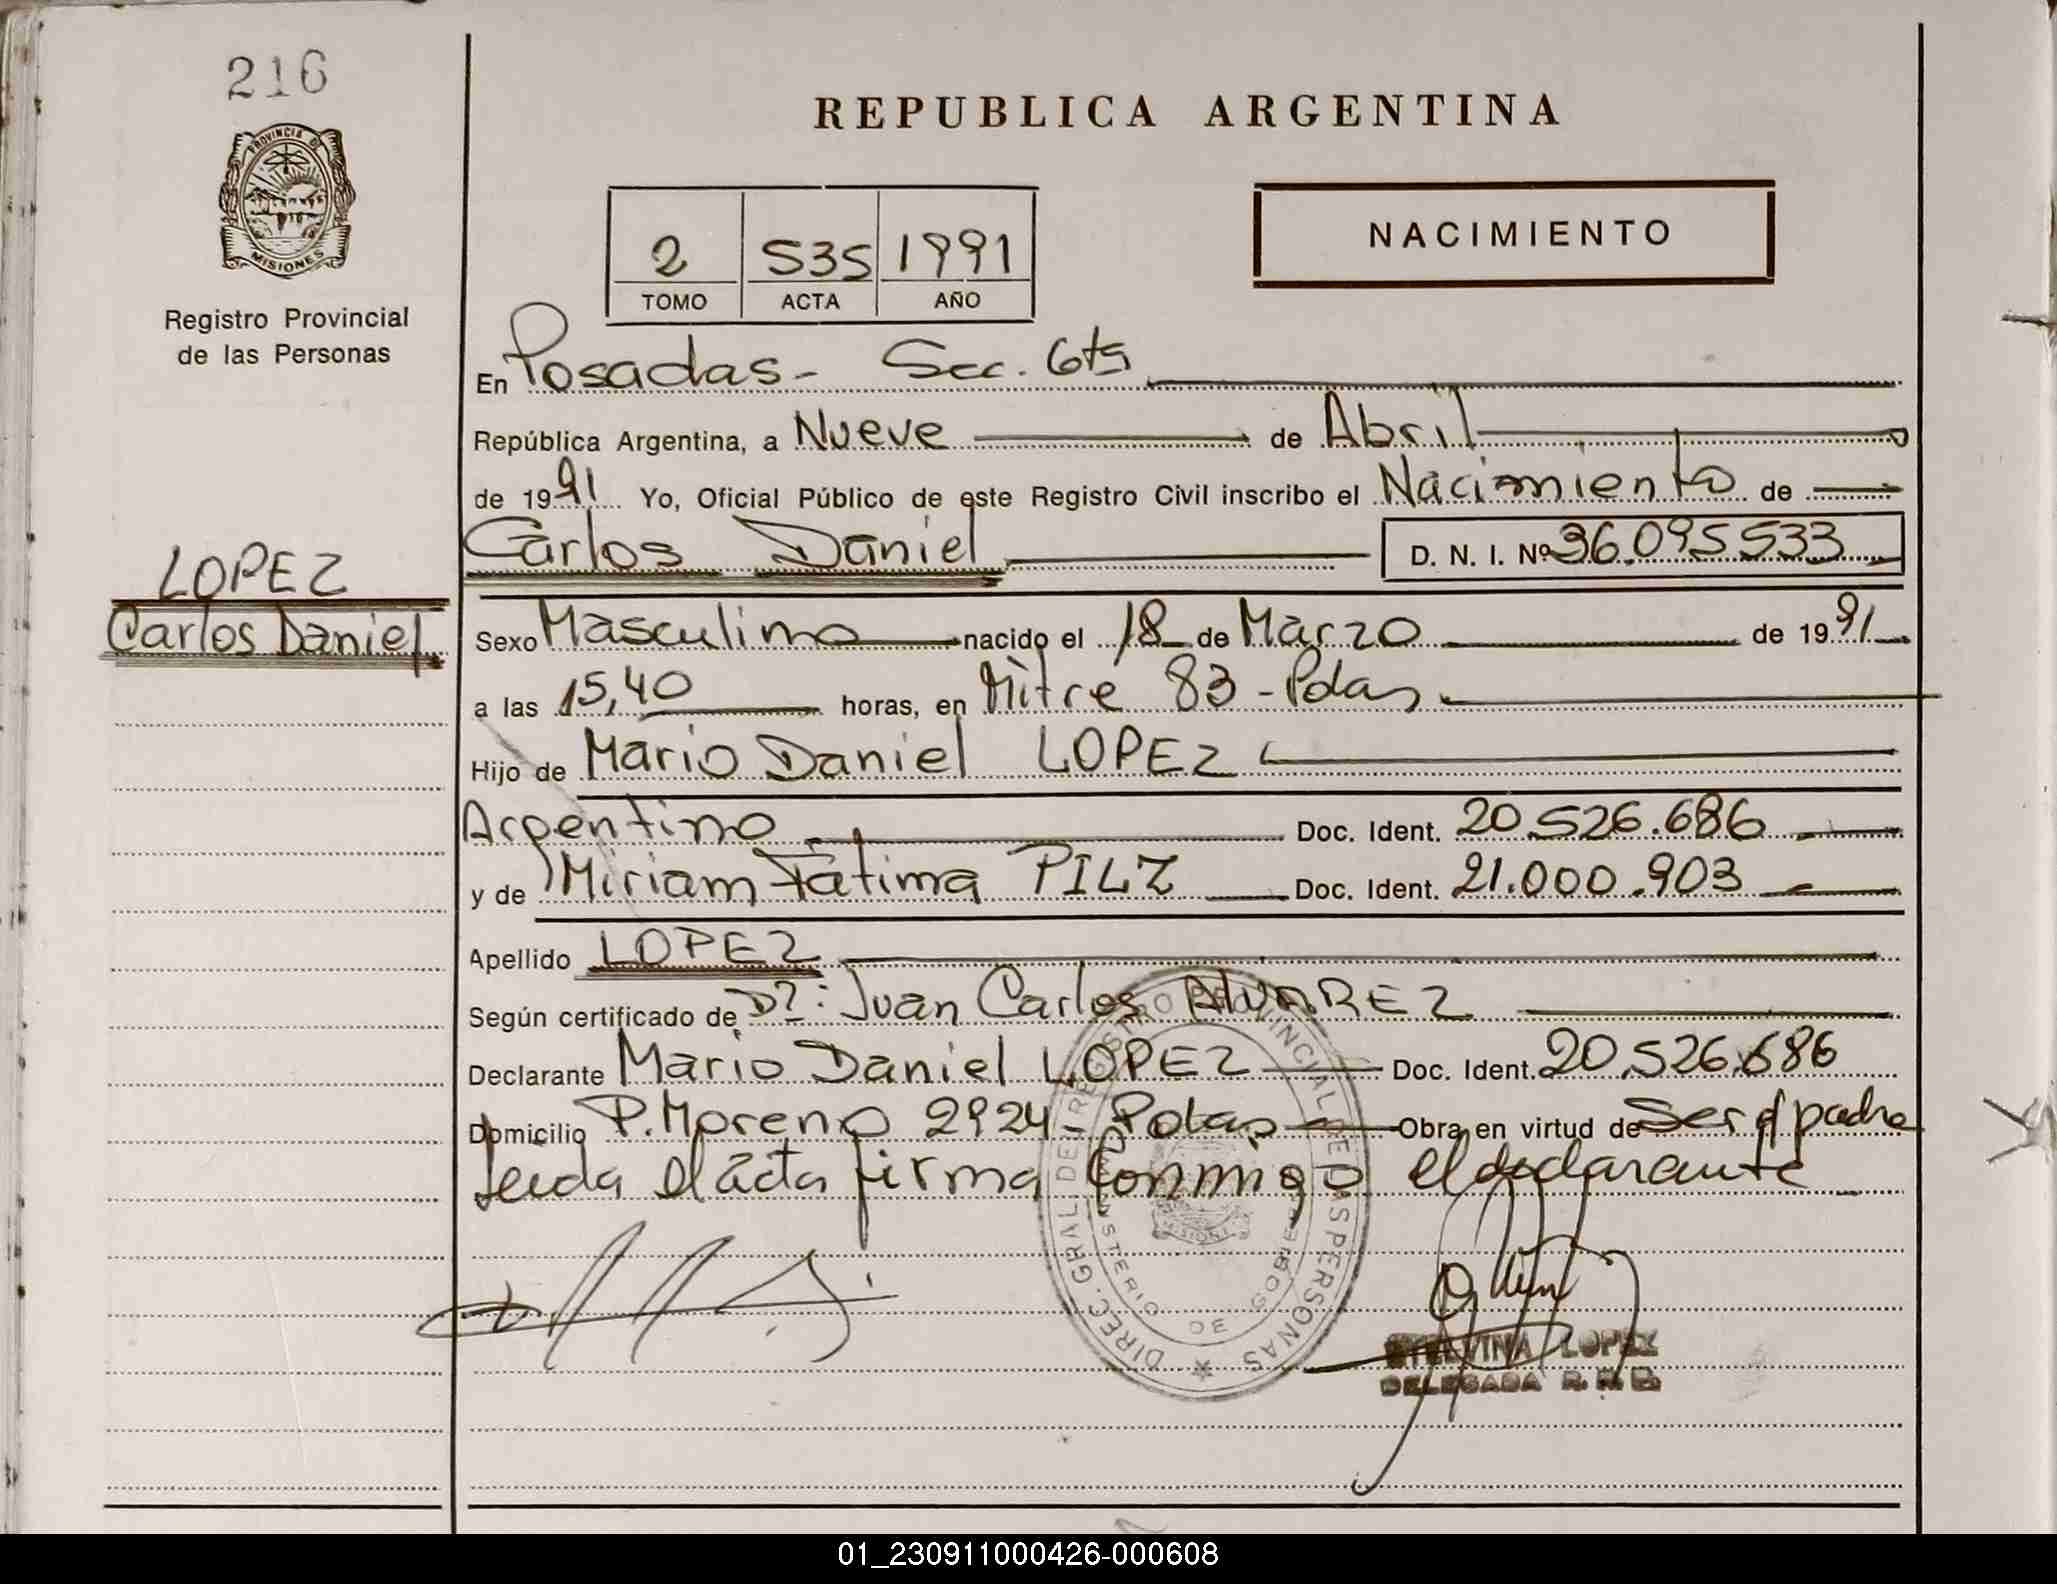 216
PROVINCIA DE
MISIONES
Registro Provincial
de las Personas
REPUBLICA ARGENTINA
NACIMIENTO
2 535 1991
TOMO ACTA AÑO
En Posadas - Sec. 6ta
República Argentina, a Nueve de Abril
de 1991 Yo, Oficial Público de este Registro Civil inscribo el Nacimiento de
Carlos Daniel D. N. I. Nº 36.095533
LOPEZ
Carlos Daniel
Sexo Masculino nacido el 18 de Marzo de 1991
a las 15,40 horas, en Mitre 83 - Pdas
Hijo de Mario Daniel LOPEZ
Argentino Doc. Ident. 20.526.686
y de Miriam Fatima PILZ Doc. Ident. 21.000.903
Apellido LOPEZ
Según certificado de Dr: Juan Carlos ALVAREZ
Declarante Mario Daniel LOPEZ Doc. Ident. 20.526.686
Domicilio P. Moreno 2924 - Pdas Obra en virtud de Ser el padre
Leida el acta firma Conmigo el declarante
DIREC. GRAL DEL REGISTRO PROVINCIAL DE LAS PERSONAS
MINISTERIO DE GOBIERNO
MISIONES
LOPEZ
DELEGADA R.
01_230911000426-000608